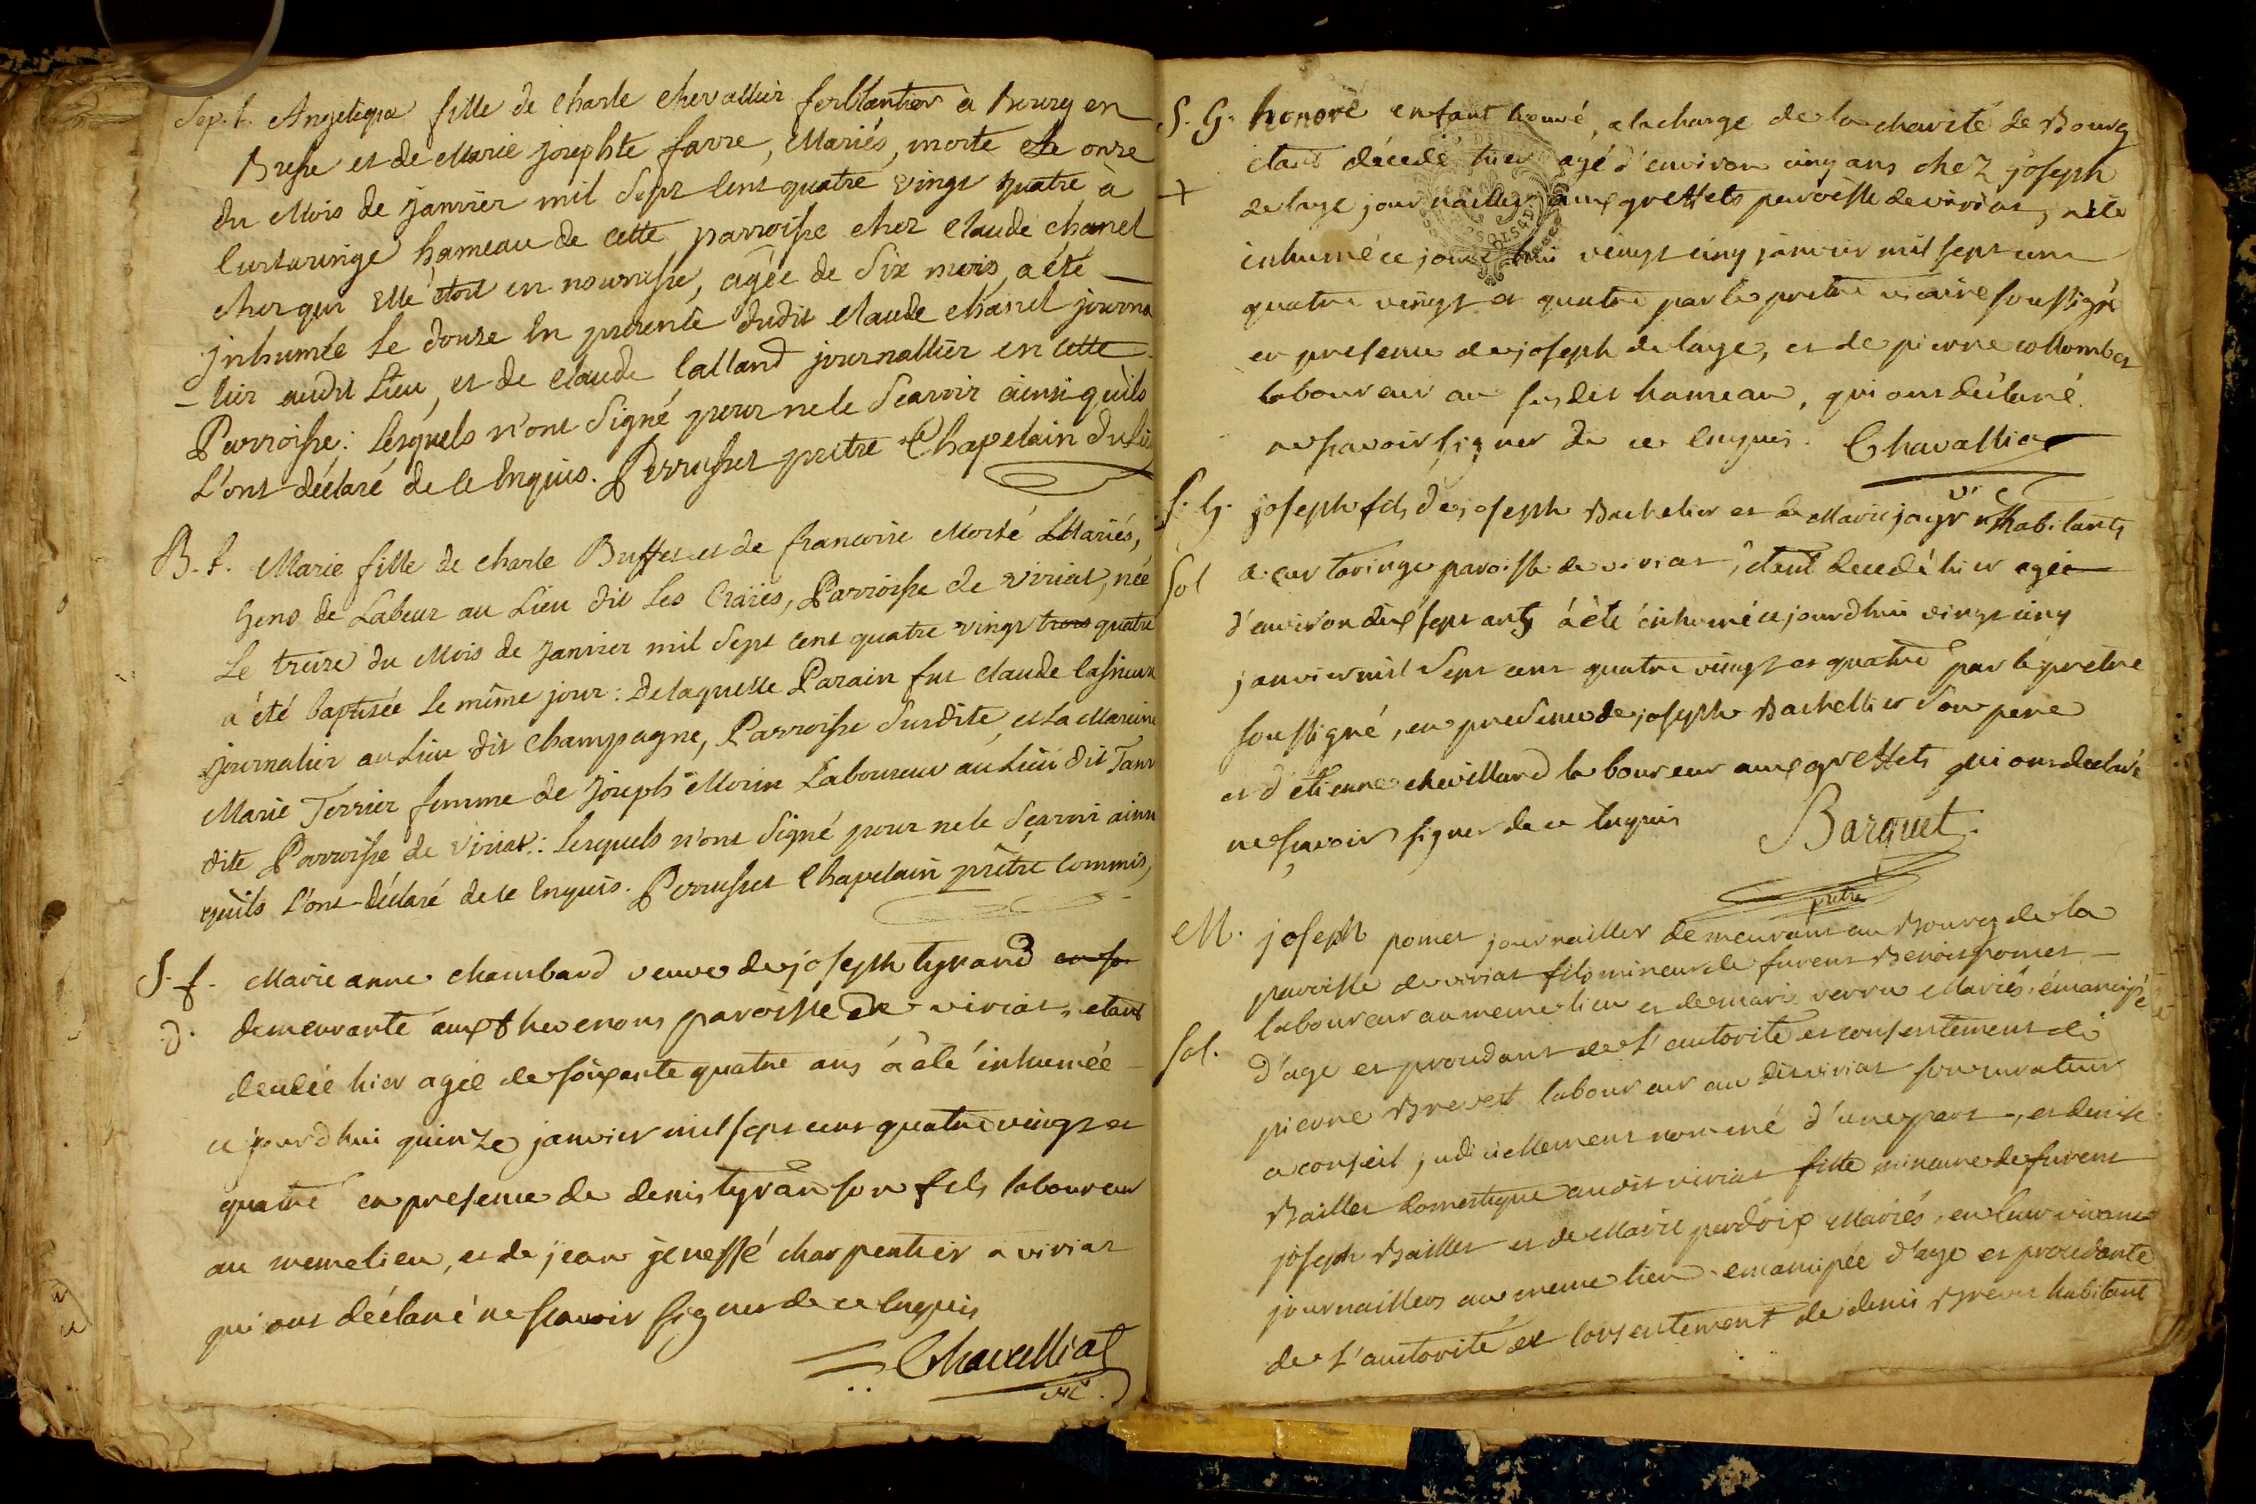 Sep. f. Angelique fille de Charle chevallier ferblantier à Bourg en
Bresse et de Marie josephte favre, Mariés, morte le onze
du Mois de janvier mil sept cent quatre vingt quatre à
Curtaringe hameau de cette parroisse chez Claude chanel
chez qui elle étoit en nourrisse, agée de six mois, a été
inhumée le douze en presence dudit Claude chanel journa
-lier audit lieu, et de Claude lalland journallier en cette
Parroisse: lesquels n'ont signé pour ne le sçavoir ainsi qu'ils
l'ont déclaré de ce Enquis. Perrusset prêtre Chapelain du lieu
B. f. Marie fille de charle Buffet et de francoise Morté Mariés,
Gens de Labeur au Lieu dit Les Craies, Parroisse de viriat, née
Le treize du Mois de Janvier mil sept cent quatre vingt trois quatre
a été baptisée le même jour: de laquelle Parain fut claude
journalier au Lieu dit Champagne, Parroisse susdite, et La Mareine
Marie Terrier femme de Joseph Morin Laboureur au Lieu dit
dite Parroisse de viriat: lesquels n'ont signé pour ne le sçavoir ainsi
qu'ils l'ont déclaré de ce Enquis. Perrusset Chapelain prêtre commis,
S. f. Marie anne chambard veuve de joseph tyrand
D. demeurante aux thevenons paroisse de viriat, etant
decedée hier agée de soixante quatre ans à été inhumée
ce jourd'hui quinze janvier mil sept cent quatre vingt et
quatre en presence de denis tyran son fils laboureur
au meme lieu, et de jean jenessé charpentier a viriat
qui ont déclaré ne scavoir signer de ce enquis
Chavalliat
vic.
S. G. honoré enfant trouvé, a la charge de la charité de Bourg
étant décedé hier agé d'environ cinq ans chez joseph
+ delaye journaillier aux grettets paroisse de viriat, a ete
inhumé ce jourd'hui vingt cinq janvier mil sept cent
quatre vingt et quatre par le pretre vicaire soussigné
en presence de joseph delaye, et de pierre collombet
laboureur au susdit hameau, qui ont déclaré
ne scavoir signer de ce enquis. Chavalliat
vic
S. G. joseph fils de joseph Bachelier et de Marie habitants
Sol a curtaringe paroisse de viriat, étant decedé hier agé
d'environ dix sept ans à été inhumé ce jourdhui vingt cinq
janvier mil sept cent quatre vingt et quatre par le pretre
soussigné, en presence de joseph Bachellier son pere
et d'etienne chevillard laboureur aux grettets qui ont declaré
ne scavoir signer de ce enquis Barquet
prêtre
M. joseph pomet journaillier demeurant au Bourg de la
paroisse de viriat fils mineur de furent Benoit pomet
laboureur au meme lieu et de marie verru Mariés, émancipé
Sol. d'age et procedant de l'autorité et consentement de
pierre Brevet laboureur au dit viriat son curateur
a conseil judiciellement nommé d'une part, et denise
Baillet domestique audit viriat fille mineure de furent
joseph Baillet et de Marie perdrix Mariés, en leur vivant
journailliers au meme lieu emancipée d'age et procedante
de l'autorité et consentement de denis Brevet habitant